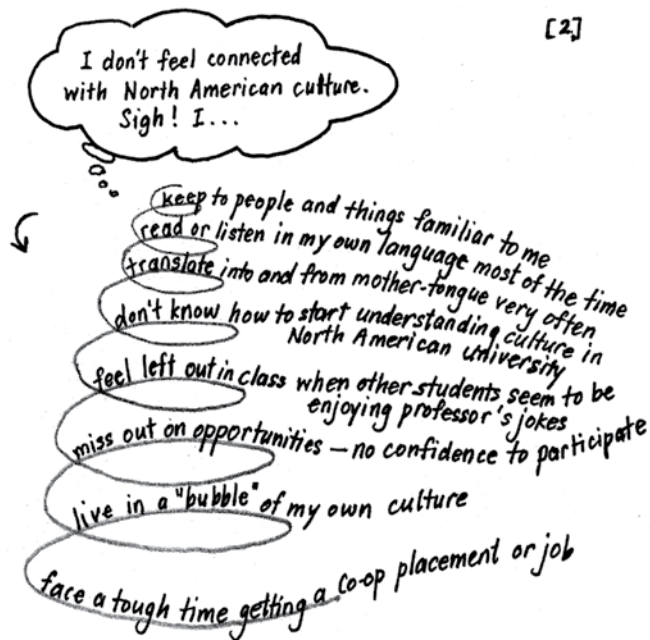 [2]
I don't feel connected
with North American culture.
Sigh! I...
keep to people and things familiar to me
read or listen in my own language most of the time
translate into and from mother-tongue very often
don't know how to start understanding culture in
North American university
feel left out in class when other students seem to be
enjoying professor's jokes
miss out on opportunities – no confidence to participate
live in a "bubble" of my own culture
face a tough time getting a co-op placement or job